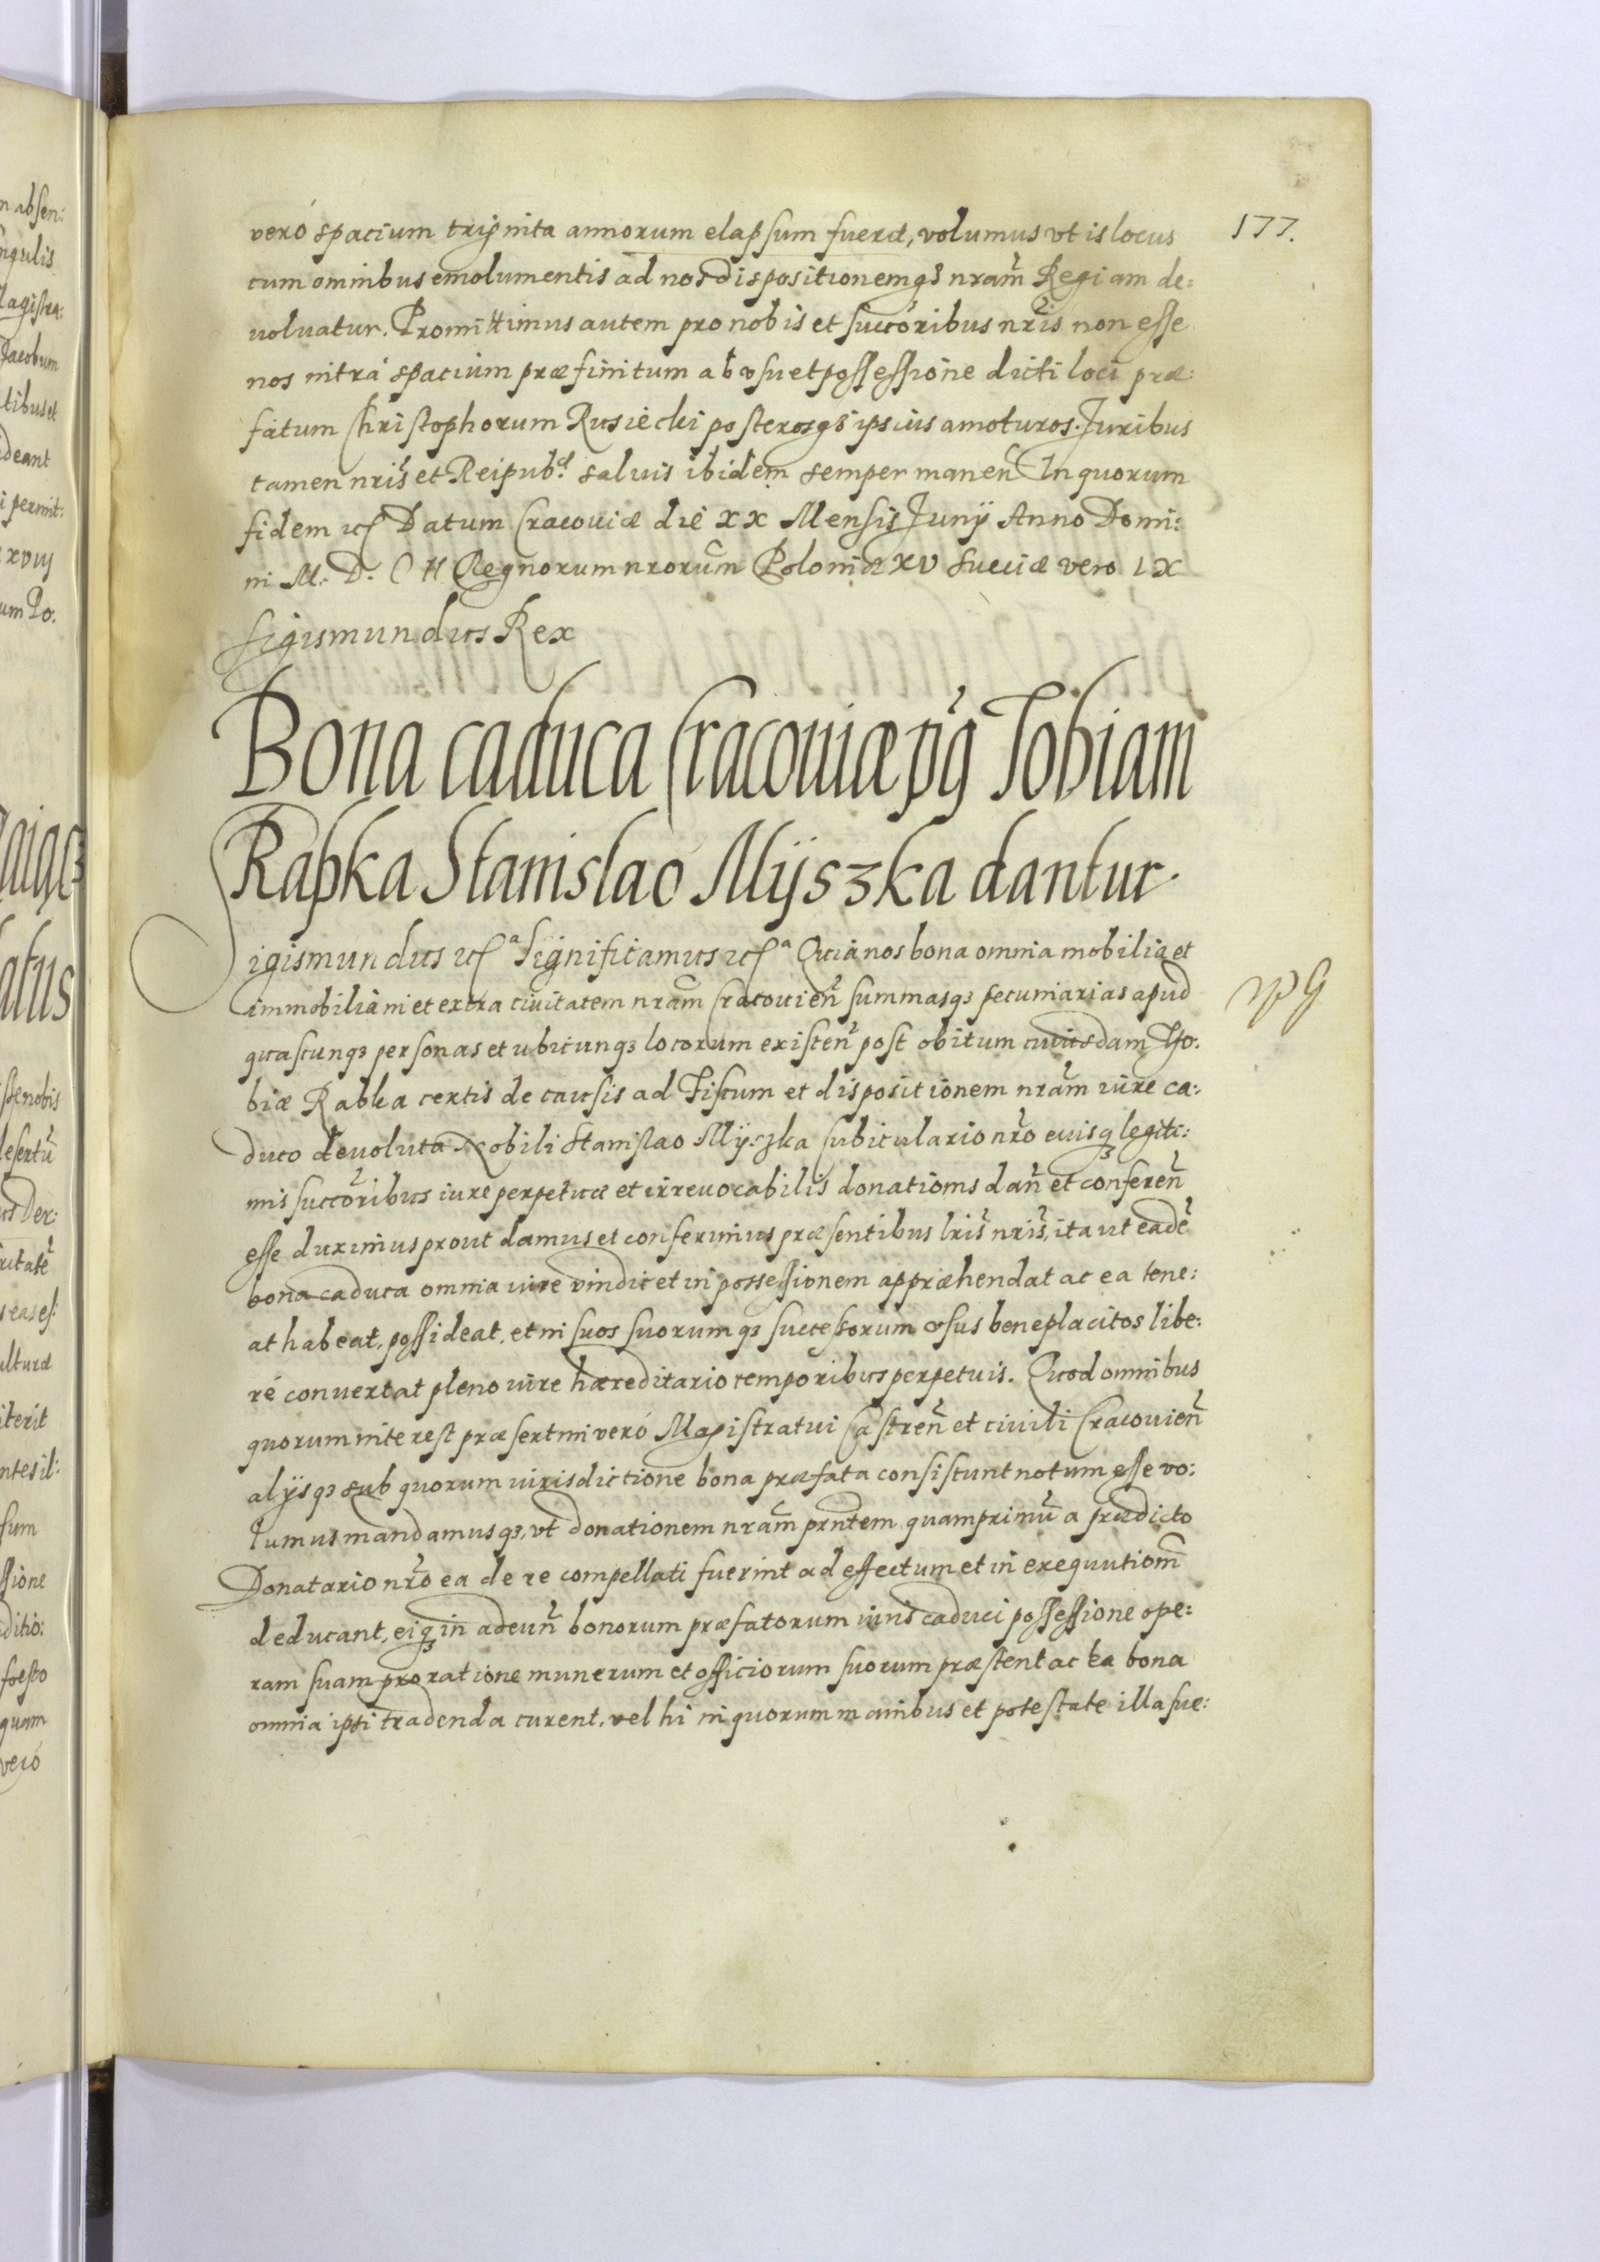 177.
veró spacium trÿginta annorum elapsum fuerit, volumus vt is locus
cum omnibus emolumentis ad nos dispositionemqз nram̃ Regiam de:
uoluatur. Promittimus autem pro nobis et succõribus nris̃ non esse
nos intrá spacium præfinitum ab vsu et possessione dicti loci præ:
fatum Christophorum Rusiecki posterosqз ipsius amoturos. Juribus
tamen nris̃ et Reipub. saluis ibidem semper maneñ In quorum
fidem etc Datum Cracouiæ die XX Mensis Junÿ Anno Domi:
ni M. D. C II Regnorum nrorum̃ Poloniæ XV Sueciæ vero IX
Sigismundus Rex
Bona caduca Cracouiæ p9 Tobiam
Rapka Stanislao Mÿszka dantur.
Sigismundus etc.ᵃ Significamus etc.ᵃ Quia nos bona omnia mobilia et
immobilia in et extra ciuitatem nram̃ Cracouieñ summasqз pecuniarias apud
quascunqз personas et ubicunqз locorum existeñ post obitum cuiusdam Tho:
biæ Rabka certis de causis ad Fiscum et dispositionem nram̃ iure ca:
duco deuoluta Nobili Stanislao Mÿszka subiculario nrõ eiusqз legiti:
mis succõribus iure perpetuæ et irreuocabilis donationis dañ et confereñ
esse duximus prout damus et conferimus præsentibus lris̃ nris̃, ita ut eadẽ
bona caduca omnia iure vindicet in possessionem appræhendat ac ea tene:
at habeat, possideat, et in suos suorumqз successorum vsus beneplacitos libe:
ré conuertat pleno iure hæreditario temporibus perpetuis. Quod omnibus
quorum interest præsertim veró Magistratui Castreñ et ciuili Cracouieñ
alÿsqз sub quorum iurisdictione bona præfata consistunt notum esse vo:
lumus mandamusqз, vt donationem nram̃ prñtem quamprimũ a prædicto
Donatario nrõ ea de re compellati fuerint ad effectum et in exequutiom̃
deducant, eiqз in adeuñ bonorum præfatorum iuris caduci possessione ope:
ram suam pro ratione munerum et officiorum suorum præstent ac ea bona
omnia ipsi tradenda curent, vel hi in quorum manibus et potestate illa fue: